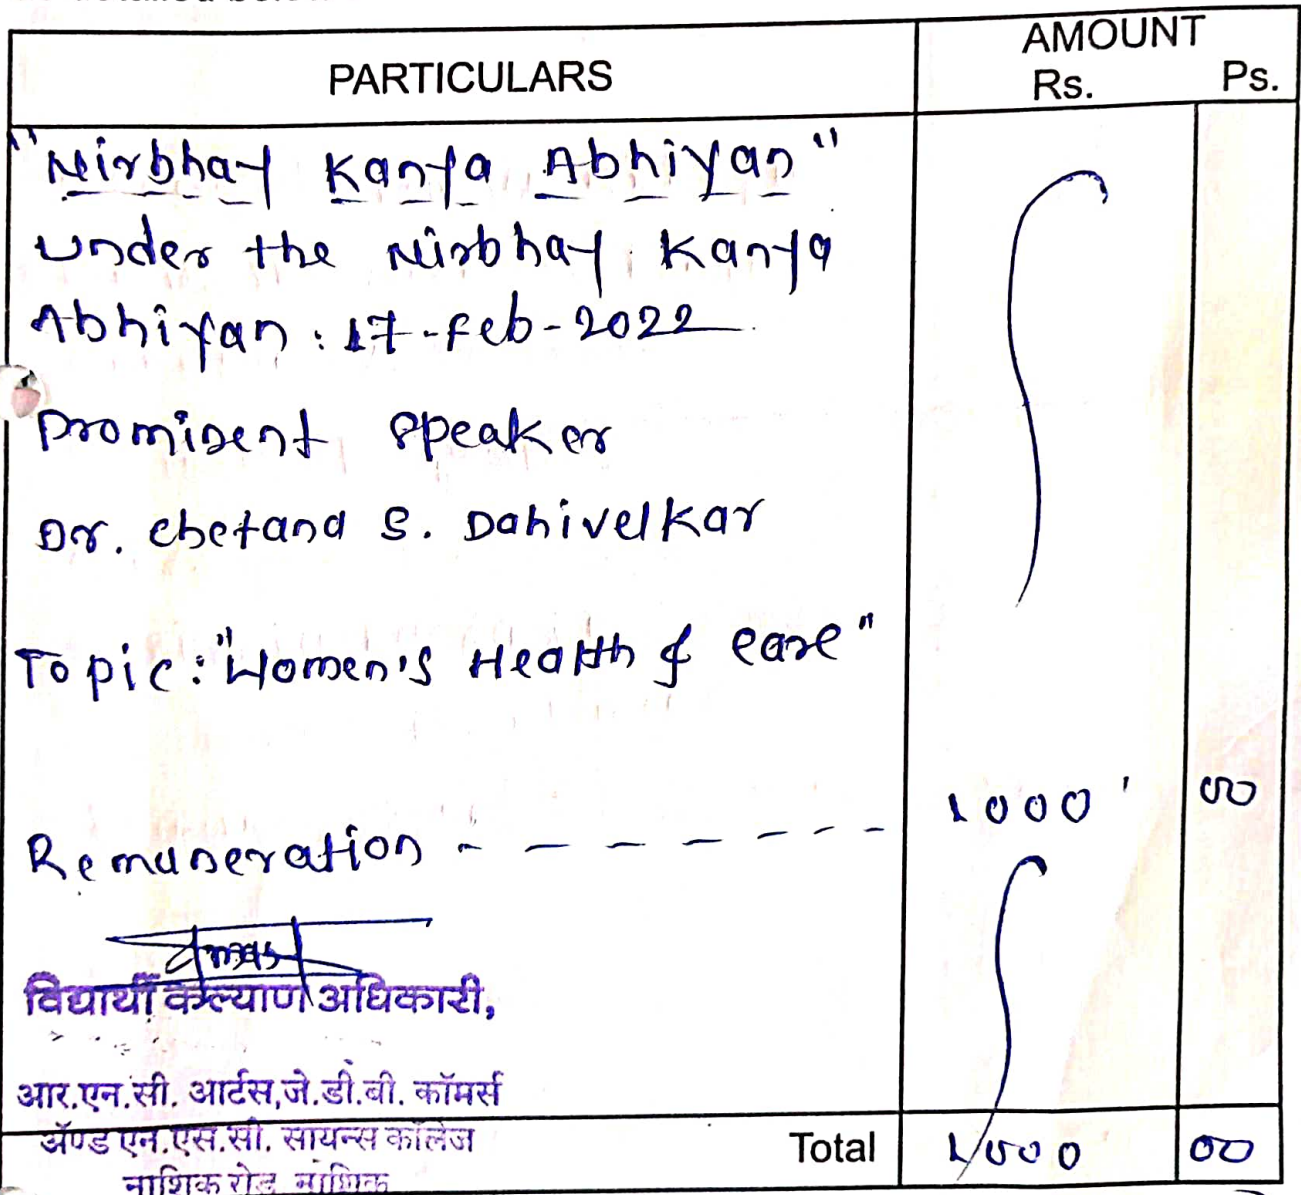 PARTICULARS
AMOUNT
Rs. Ps.
"Nirbhay Kanya Abhiyan"
under the Nirbhay Kanya
Abhiyan : 17-Feb-2022
Prominent Speaker
Dr. Chetana S. Dahivelkar
Topic : "Women's Health & Care"
Remuneration - - - - - - - - 1000' 00
विद्यार्थी कल्याण अधिकारी,
आर.एन.सी. आर्टस,जे.डी.बी. कॉमर्स
अ‍ॅण्ड एन.एस.सी. सायन्स कॉलेज
नाशिक रोड, नाशिक
Total 1000 00